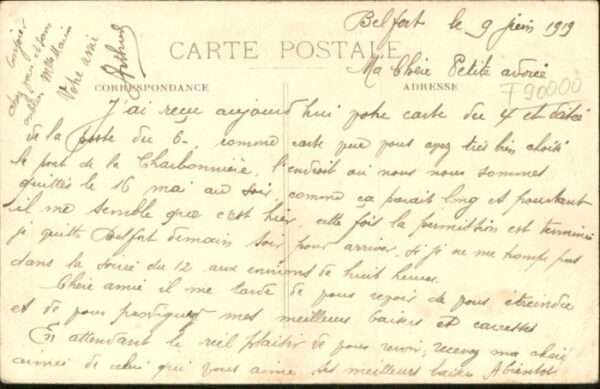 Belfort le 9 juin 1919
CARTE POSTALE
Ma Chère Petite adorée
CORRESPONDANCE
ADRESSE
T90000
J'ai reçu aujourd'hui votre carte du 4 et datée
de la poste du 6, comme carte que vous avez très bien choisi
le pont de la Charbonnière, l'endroit où nous nous sommes
quittés le 16 mai au soir, comme ça parait long et pourtant
il me semble que c'est hier, cette fois la permission est terminée
je quitte Belfort demain soir pour arriver, si je ne me trompe pas
dans la soirée du 12 aux environs de huit heures.
Chère amie il me tarde de vous revoir de vous étreindre
et de vous prodiguer mes meilleurs baisers et caresses
En attendant le réel plaisir de vous revoir, recevez ma chérie
aimée de celui qui vous aime ses meilleurs baisers A bientôt
chez vous
Votre ami